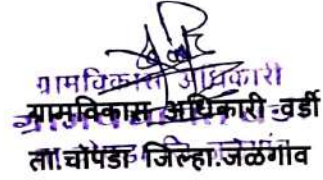 ग्रामविकास अधिकारी
ग्रामविकास अधिकारी वर्डी
ता.चोपडा जिल्हा.जळगाव